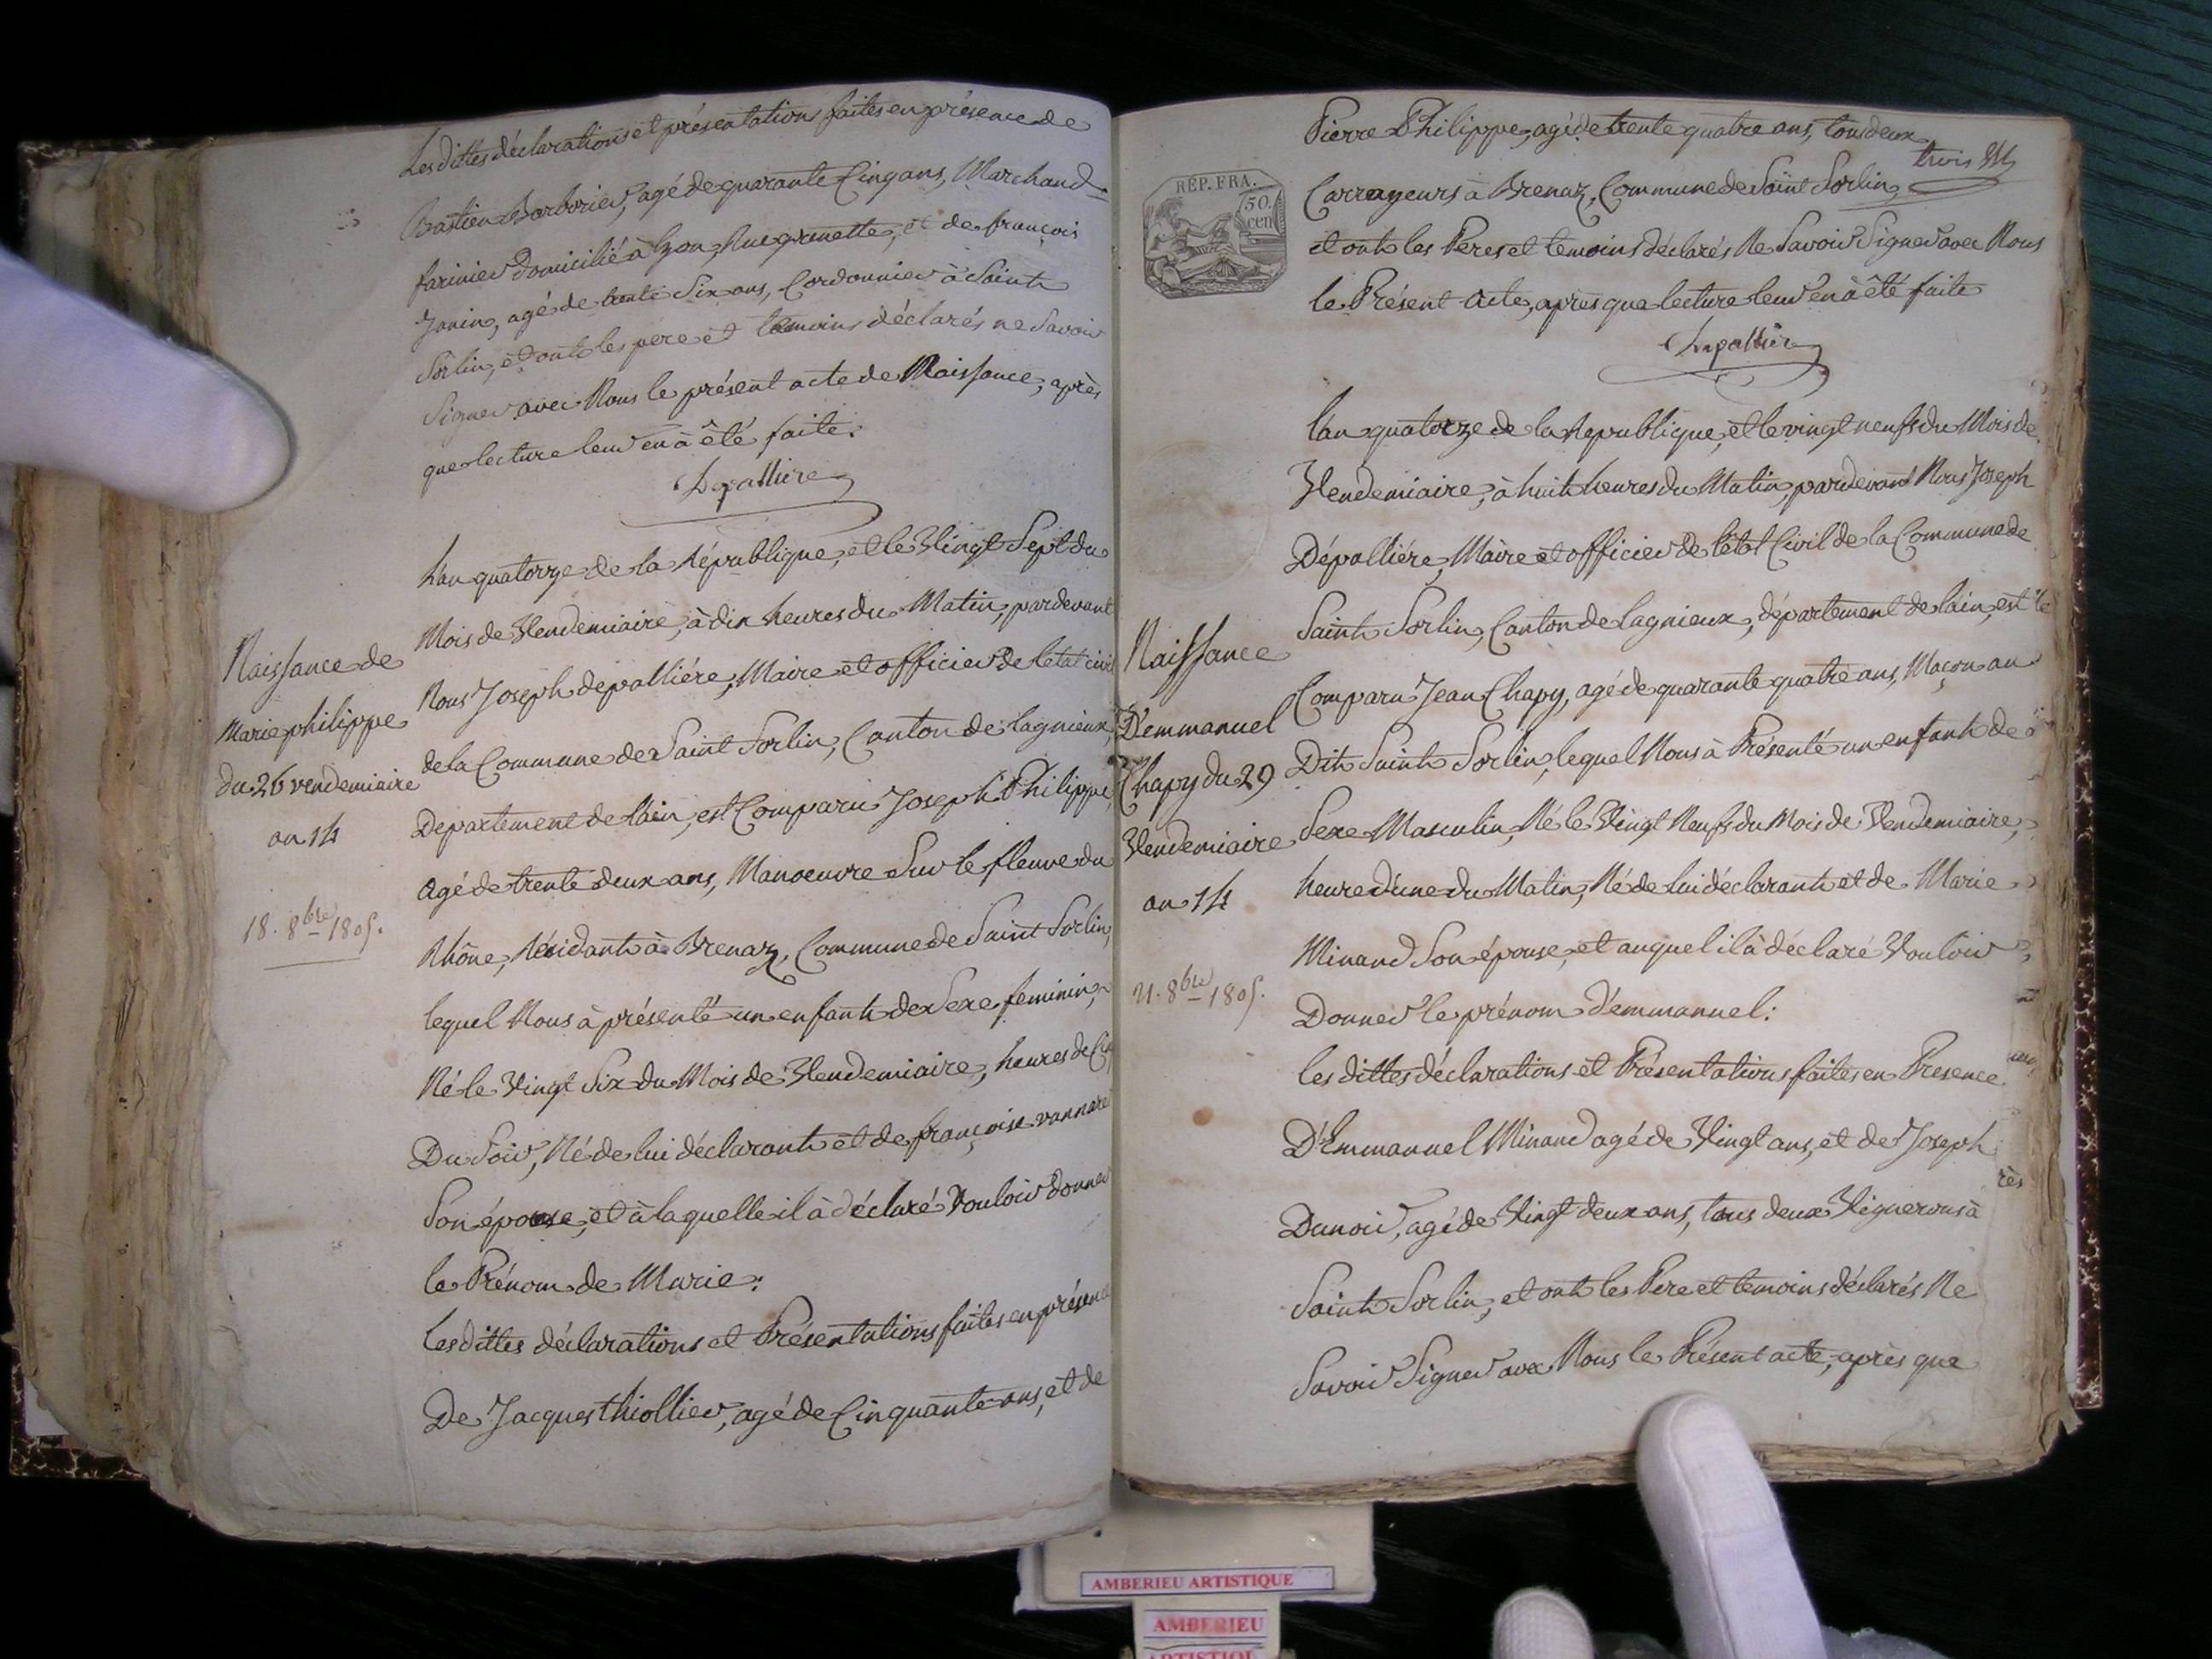 Les dittes déclarations et présentations faites en présence de
Bastien Barborier, agé de quarante Cinq ans, Marchand
farinier domicilié à lyon, Rue grenette, et de françois
Janin, agé de trente Six ans, Cordonnier à Saint
Sorlin, et ont les pere et temoins déclarés ne Savoir
Signer avec Nous le présent acte de Naissance, après
que lecture leur en à été faite.
Depallière
Naissance de
Marie philippe
du 26 vendemiaire
an 14
18. 8bre 1805.
L'an quatorze de la République, et le Vingt Sept du
Mois de Vendemiaire, à dix heures du Matin, pardevant
Nous Joseph depalliére, Maire et officier de l'etat civil
de la Commune de Saint Sorlin, Canton de lagnieux,
Departement de l'ain, est Comparu Joseph Philippe
agé de trente deux ans, Manoeuvre Sur le fleuve du
Rhône, Résidant à Brenaz, Commune de Saint Sorlin,
lequel Nous à présenté un enfant de Sexe feminin,
Né le Vingt Six du Mois de Vendemiaire, heures de
Du Soir, Né de lui déclarant et de françoise
Son épouse, et à laquelle il à déclaré Vouloir donner
le Prénom de Marie:
Les dittes déclarations et Présentations faites en présence
De Jacques thiollier, agé de Cinquante ans, et de
Pierre Philippe, agé de trente quatre ans, tous deux
trois
REP. FRA.
50.
cen
Carrayeurs à Brenaz, Commune de Saint Sorlin,
et ont les Peres et temoins déclarés Ne Savoir Signer avec Nous
le Présent Acte, après que lecture leur en à été faite
Depallière
L'an quatorze de la Republique, et le vingt neuf du Mois de
Vendemiaire, à huit heures du Matin, pardevant Nous Joseph
Dépalliére, Maire et officier de l'état Civil de la Commune de
Saint Sorlin, Canton de lagnieux, département de l'ain, est
Comparu Jean Chapy, agé de quarante quatre ans, Maçon au
Dit Saint Sorlin, lequel Nous à Présenté un enfant de
Sexe Masculin, Né le Vingt Neuf du Mois de Vendemiaire,
heure d'une du Matin, Né de lui déclarant et de Marie
Minand Son épouse, et auquel il à déclaré Vouloir
Donner le prénom d'emmanuel:
Naissance
D'emmanuel
Chapy du 29
Vendemiaire
an 14
21. 8bre 1805.
les dittes déclarations et Présentations faites en Presence
D'Emmanuel Minand agé de Vingt ans, et de Joseph
Dunoir, agé de Vingt deux ans, tous deux Vignerons à
Saint Sorlin, et ont les Pere et temoins déclarés Ne
Savoir Signer avec Nous le Présent acte, après que
AMBERIEU ARTISTIQUE
AMBERIEU
ARTISTIQUE